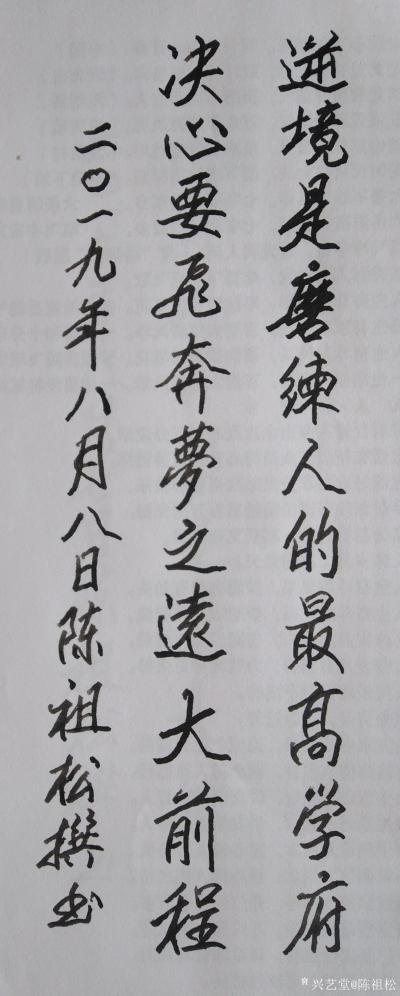 逆境是磨練人的最高学府
决心要飛奔夢之遠大前程
二〇一九年八月八日陈祖松撰书
兴艺堂@陈祖松